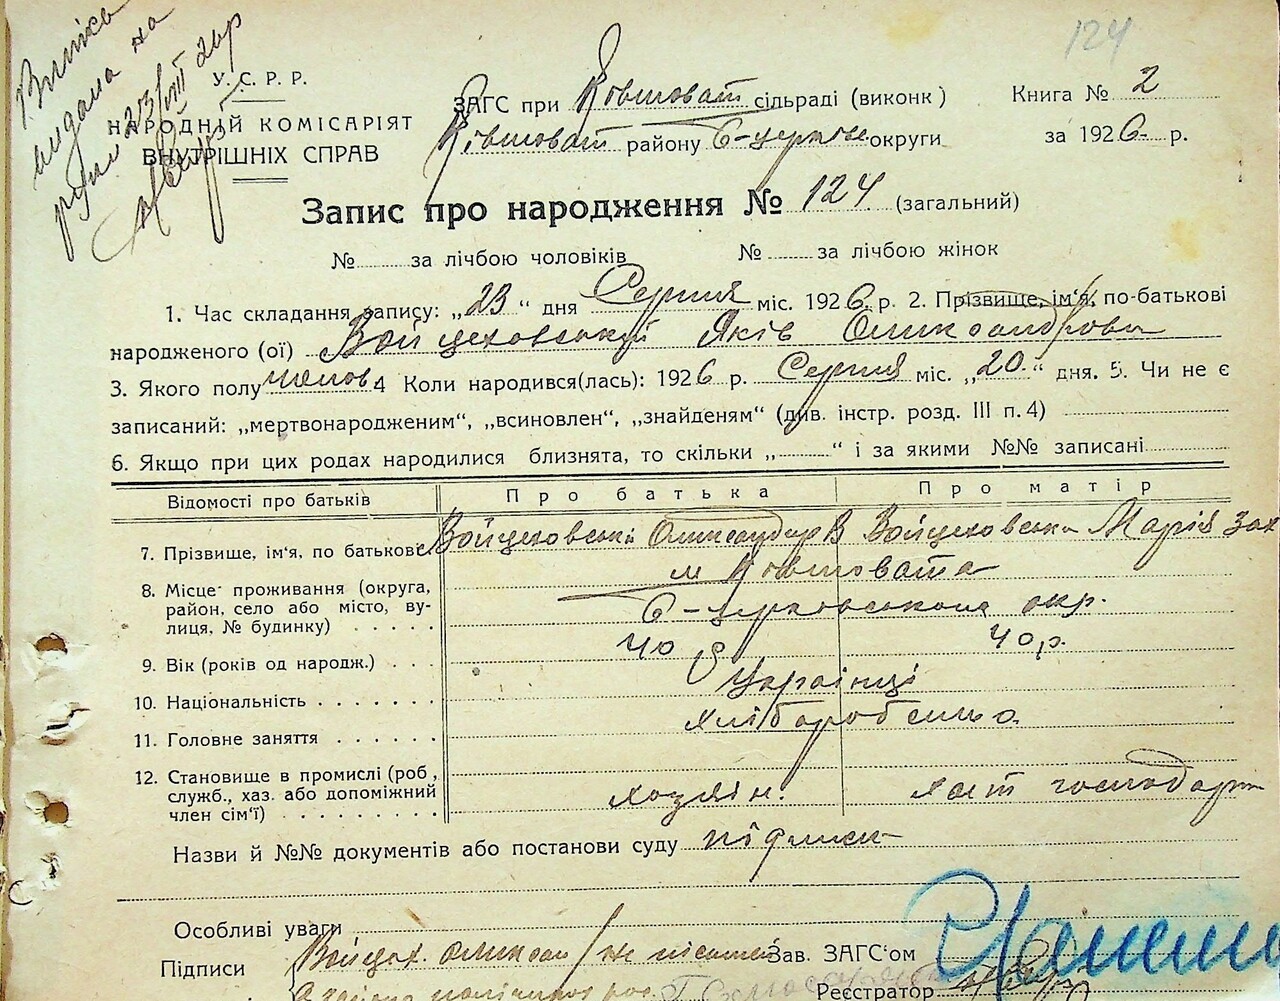 124
Виписка
видана на
руки 23/VIII 26р
У. С. Р. Р.
НАРОДНІЙ КОМІСАРІЯТ
ВНУТРІШНІХ СПРАВ
ЗАГС при Ковшоват сільраді (виконк)
Ківшоват району Б-церків округи
Книга № 2
за 1926 р.
Запис про народження № 124 (загальний)
№ за лічбою чоловіків № за лічбою жінок
1. Час складання запису: „23“ дня Серпня міс. 1926 р. 2. Прізвище, ім'я, по-батькові
народженого (ої) Войцеховський Яків Олександрович
3. Якого полу чолов 4 Коли народився(лась): 1926 р. Серпня міс. „20“ дня. 5. Чи не є
записаний: „мертвонародженим“, „всиновлен“, „знайденям“ (див. інстр. розд. III п. 4)
6. Якщо при цих родах народилися близнята, то скільки „ “ і за якими №№ записані
Відомості про батьків Про батька Про матір
7. Прізвище, ім'я, по батькові Войцеховські Олександир В Войцеховська Марія Зах
8. Місце проживання (округа,
район, село або місто, ву-
лиця, № будинку)
м Ковшовата
Б-церковської окр.
9. Вік (років од народж.) 40 р 40 р.
10. Національність Українці
11. Головне заняття хліборобство
12. Становище в промислі (роб,
служб., хаз. або допоміжний
член сім'ї)
хозяїн. хат господарка
Назви й №№ документів або постанови суду підписк
Особливі уваги
Підписи Войцех. Олександ / не písьмен
Зав. ЗАГС'ом
Реєстратор